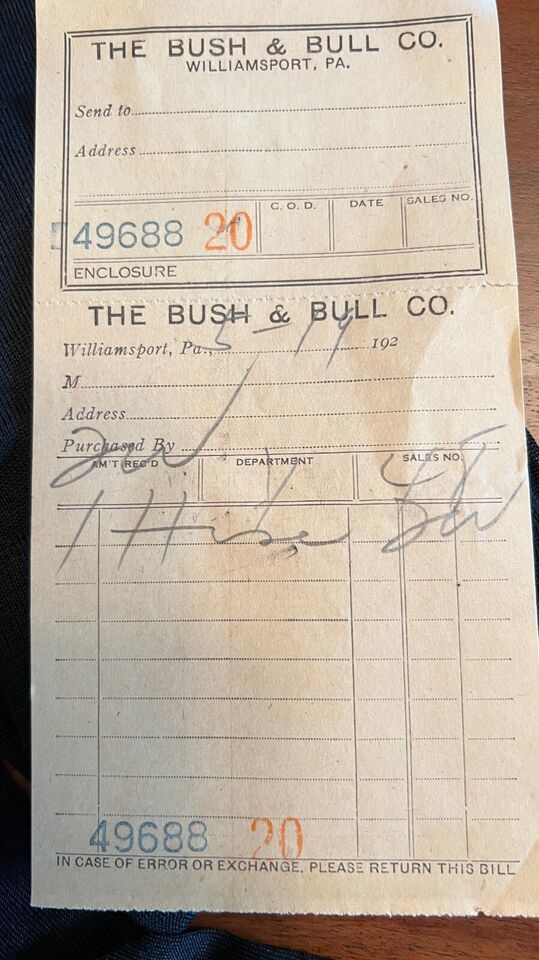 THE BUSH & BULL CO.
WILLIAMSPORT, PA.
Send to
Address
C. O. D. DATE SALES NO.
49688 20
ENCLOSURE
THE BUSH & BULL CO.
Williamsport, Pa., 5-19 192
M
Address
Purchased By
AM'T REC'D DEPARTMENT SALES NO.
1 Hose
49688 20
IN CASE OF ERROR OR EXCHANGE, PLEASE RETURN THIS BILL